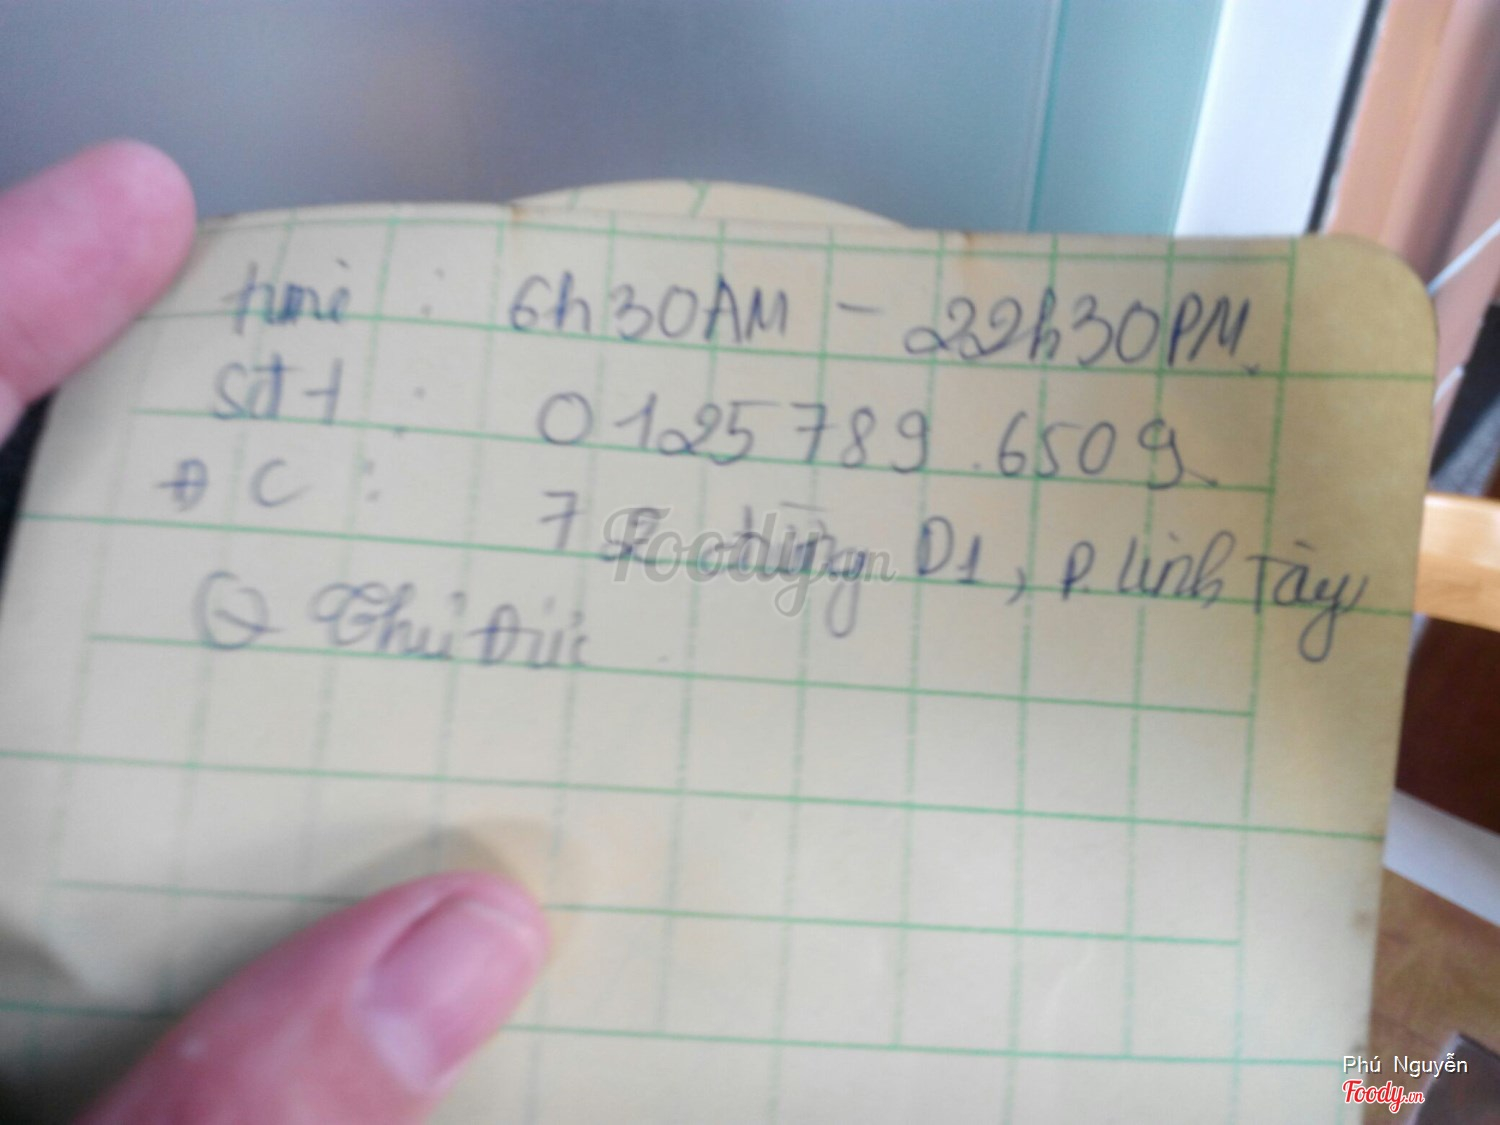 time : 6h30AM - 22h30PM
Sđt : 0125789.6509
ĐC : 7 đường D1, P. Linh Tây,
Q Thủ Đức
Foody.vn
Phú Nguyễn
Foody.vn